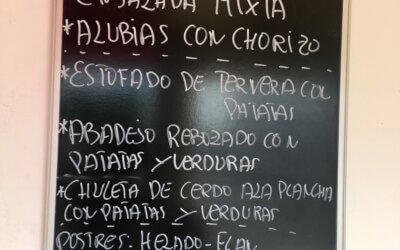 ENSALADA MIXTA
*ALUBIAS CON CHORIZO
*ESTOFADO DE TERVERA CON
PATATAS
*ABADEJO REBOZADO CON
PATATAS Y VERDURAS
*CHULETA DE CERDO A LA PLANCHA
CON PATATAS Y VERDURAS
POSTRES. HELADO-FLAN